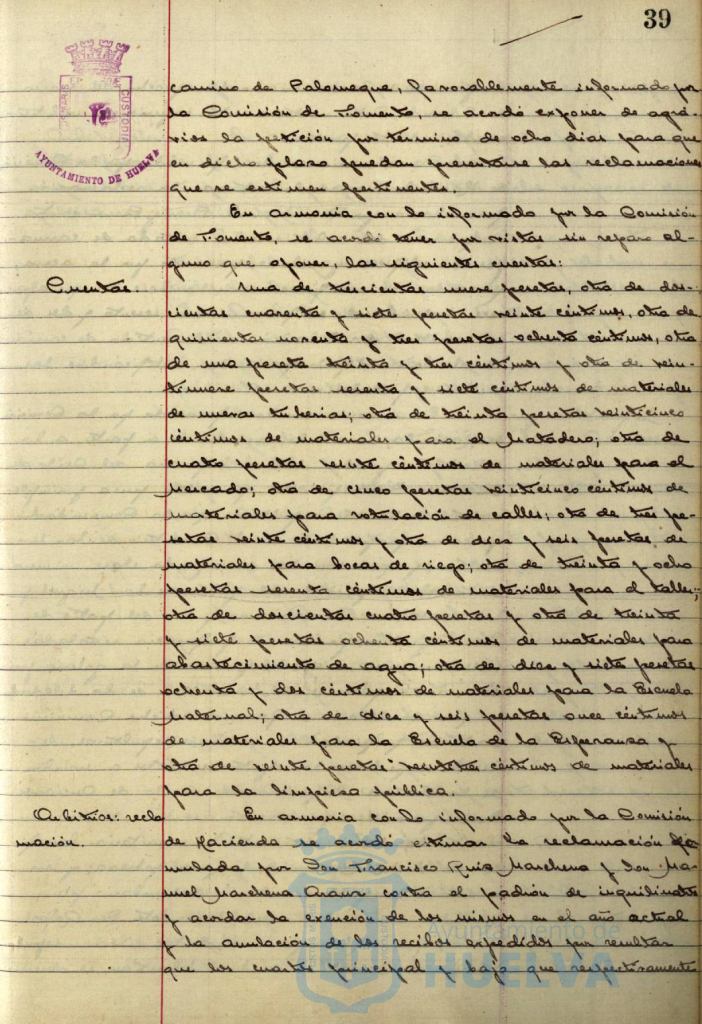 39
PORTUS MARIS ET TERRAE CUSTODIA
AYUNTAMIENTO DE HUELVA
camino de Palomeque, favorablemente informado por
la Comisión de Fomento, se acordó exponer de agra-
vios la petición por término de ocho días para que
en dicho plazo puedan presentarse las reclamaciones
que se estimen pertinentes.
En armonía con lo informado por la Comisión
de Fomento, se acordó tener por vistas sin reparo al-
guno que oponer, las siguientes cuentas:
Cuentas.
Una de trescientas nueve pesetas, otra de dos-
cientas cuarenta y siete pesetas veinte céntimos, otra de
quinientas noventa y tres pesetas ochenta céntimos, otra
de una peseta treinta y tres céntimos y otra de vein-
tinueve pesetas sesenta y siete céntimos de materiales
de nuevas tuberias; otra de treinta pesetas veinticinco
céntimos de materiales para el Matadero; otra de
cuatro pesetas veinte céntimos de materiales para el
Mercado; otra de cinco pesetas veinticinco céntimos de
materiales para rotulación de calles; otra de tres pe-
setas veinte céntimos y otra de diez y seis pesetas de
materiales para bocas de riego; otra de treinta y ocho
pesetas sesenta céntimos de materiales para el taller;
otra de doscientas cuatro pesetas y otra de treinta
y siete pesetas ochenta céntimos de materiales para
abastecimiento de agua; otra de diez y siete pesetas
ochenta y dos céntimos de materiales para la Escuela
Maternal; otra de diez y seis pesetas once céntimos
de materiales para la Escuela de la Esperanza y
otra de veinte pesetas veintitres céntimos de materiales
para la limpieza pública.
Arbitrios: recla
mación.
En armonía con lo informado por la Comisión
de Hacienda se acordó estimar la reclamación for-
mulada por Don Francisco Ruiz Marchena y Don Ma-
nuel Marchena Arauz contra el padrón de inquilinatos
y acordar la exención de los mismos en el año actual
y la anulación de los recibos expedidos por resultar
que los cuartos principal y bajo que respectivamente
Ayuntamiento de
HUELVA